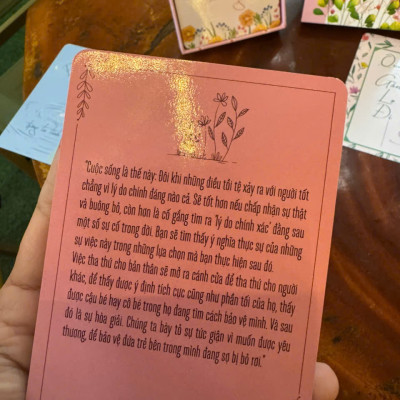 "Cuộc sống là thế này: Đôi khi những điều tồi tệ xảy ra với người tốt
chẳng vì lý do chính đáng nào cả. Sẽ tốt hơn nếu chấp nhận sự thật
và buông bỏ, còn hơn là cố gắng tìm ra "lý do chính xác" đằng sau
một số sự cố trong đời. Bạn sẽ tìm thấy ý nghĩa thực sự của những
sự việc này trong những lựa chọn mà bạn thực hiện sau đó.
Việc tha thứ cho bản thân sẽ mở ra cánh cửa để tha thứ cho người
khác, để thấy được ý định tích cực cũng như phần tối của họ, thấy
được cậu bé hay cô bé trong họ đang tìm cách bảo vệ mình. Và sau
đó là sự hòa giải. Chúng ta bày tỏ sự tức giận vì muốn được yêu
thương, để bảo vệ đứa trẻ bên trong mình đang sợ bị bỏ rơi."